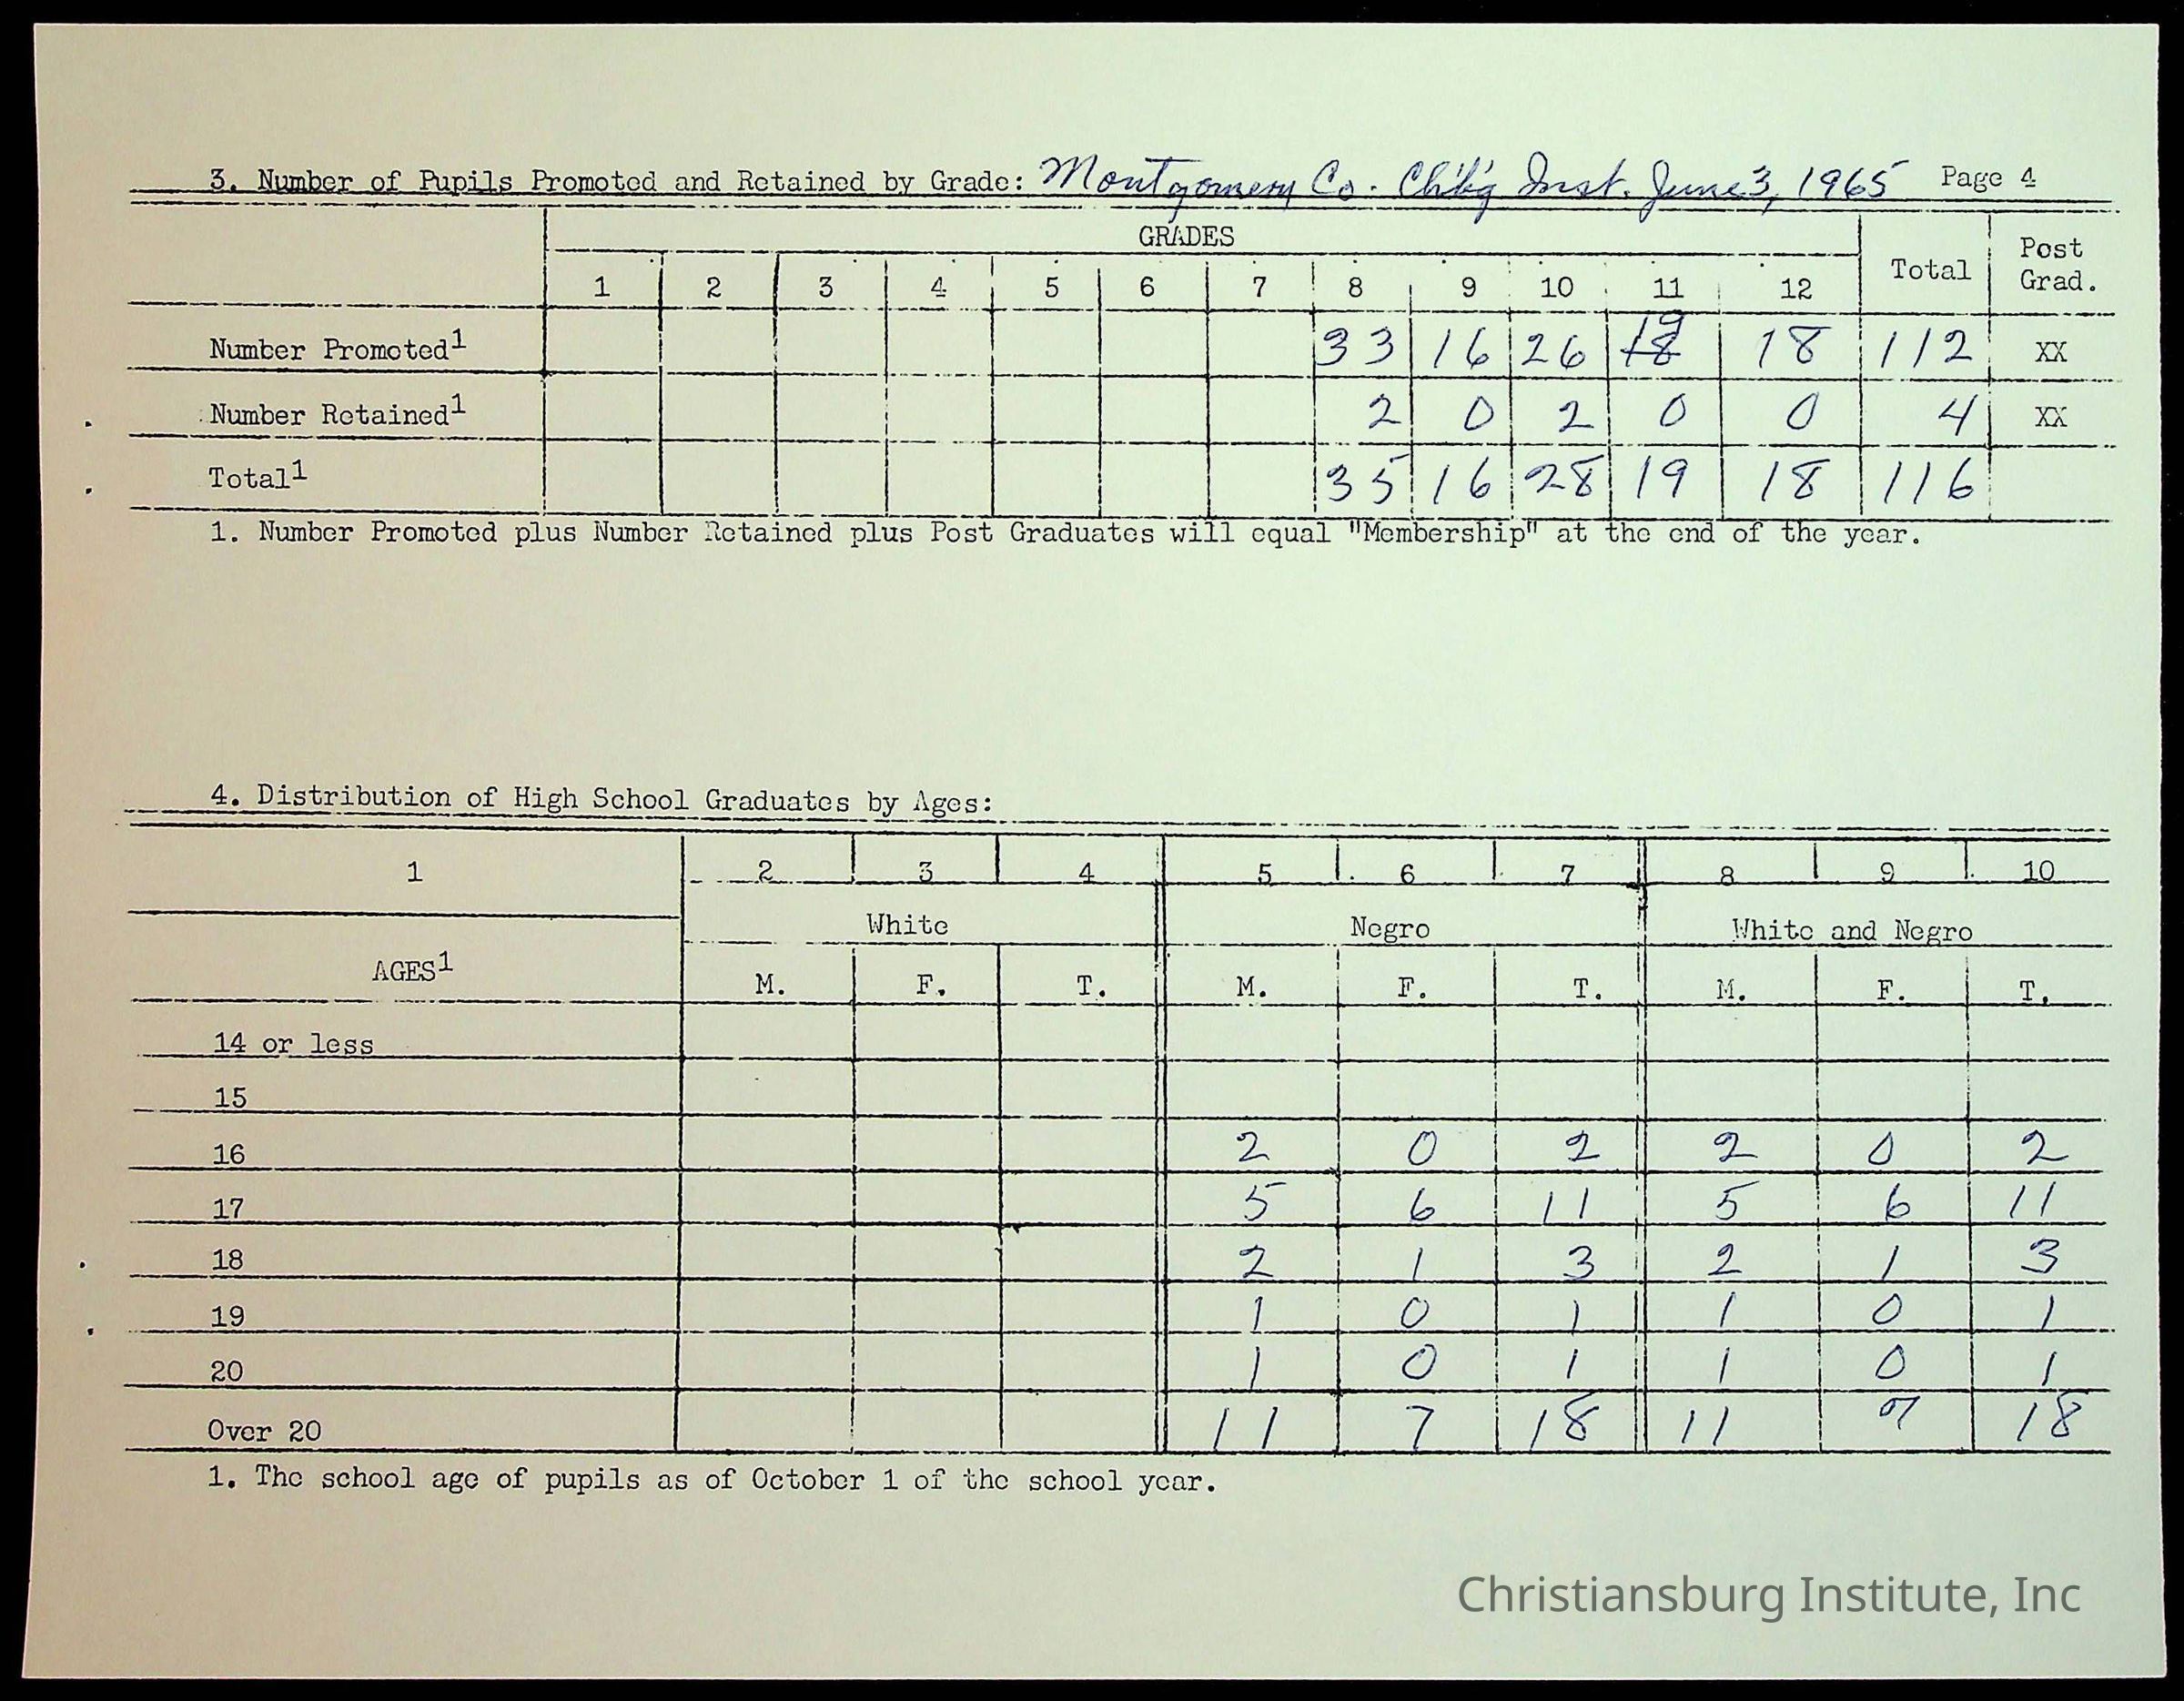 3. Number of Pupils Promoted and Retained by Grade: Montgomery Co. Ch'b'g Inst. June 3, 1965 Page 4
GRADES Total Post Grad.
1 2 3 4 5 6 7 8 9 10 11 12
Number Promoted1 33 16 26 18 19 18 112 XX
Number Retained1 2 0 2 0 0 4 XX
Total1 35 16 28 19 18 116
1. Number Promoted plus Number Retained plus Post Graduates will equal "Membership" at the end of the year.
4. Distribution of High School Graduates by Ages:
1 2 3 4 5 6 7 8 9 10
White Negro White and Negro
AGES1 M. F. T. M. F. T. M. F. T.
14 or less
15
16 2 0 2 2 0 2
17 5 6 11 5 6 11
18 2 1 3 2 1 3
19 1 0 1 1 0 1
20 1 0 1 1 0 1
Over 20 11 7 18 11 7 18
1. The school age of pupils as of October 1 of the school year.
Christiansburg Institute, Inc